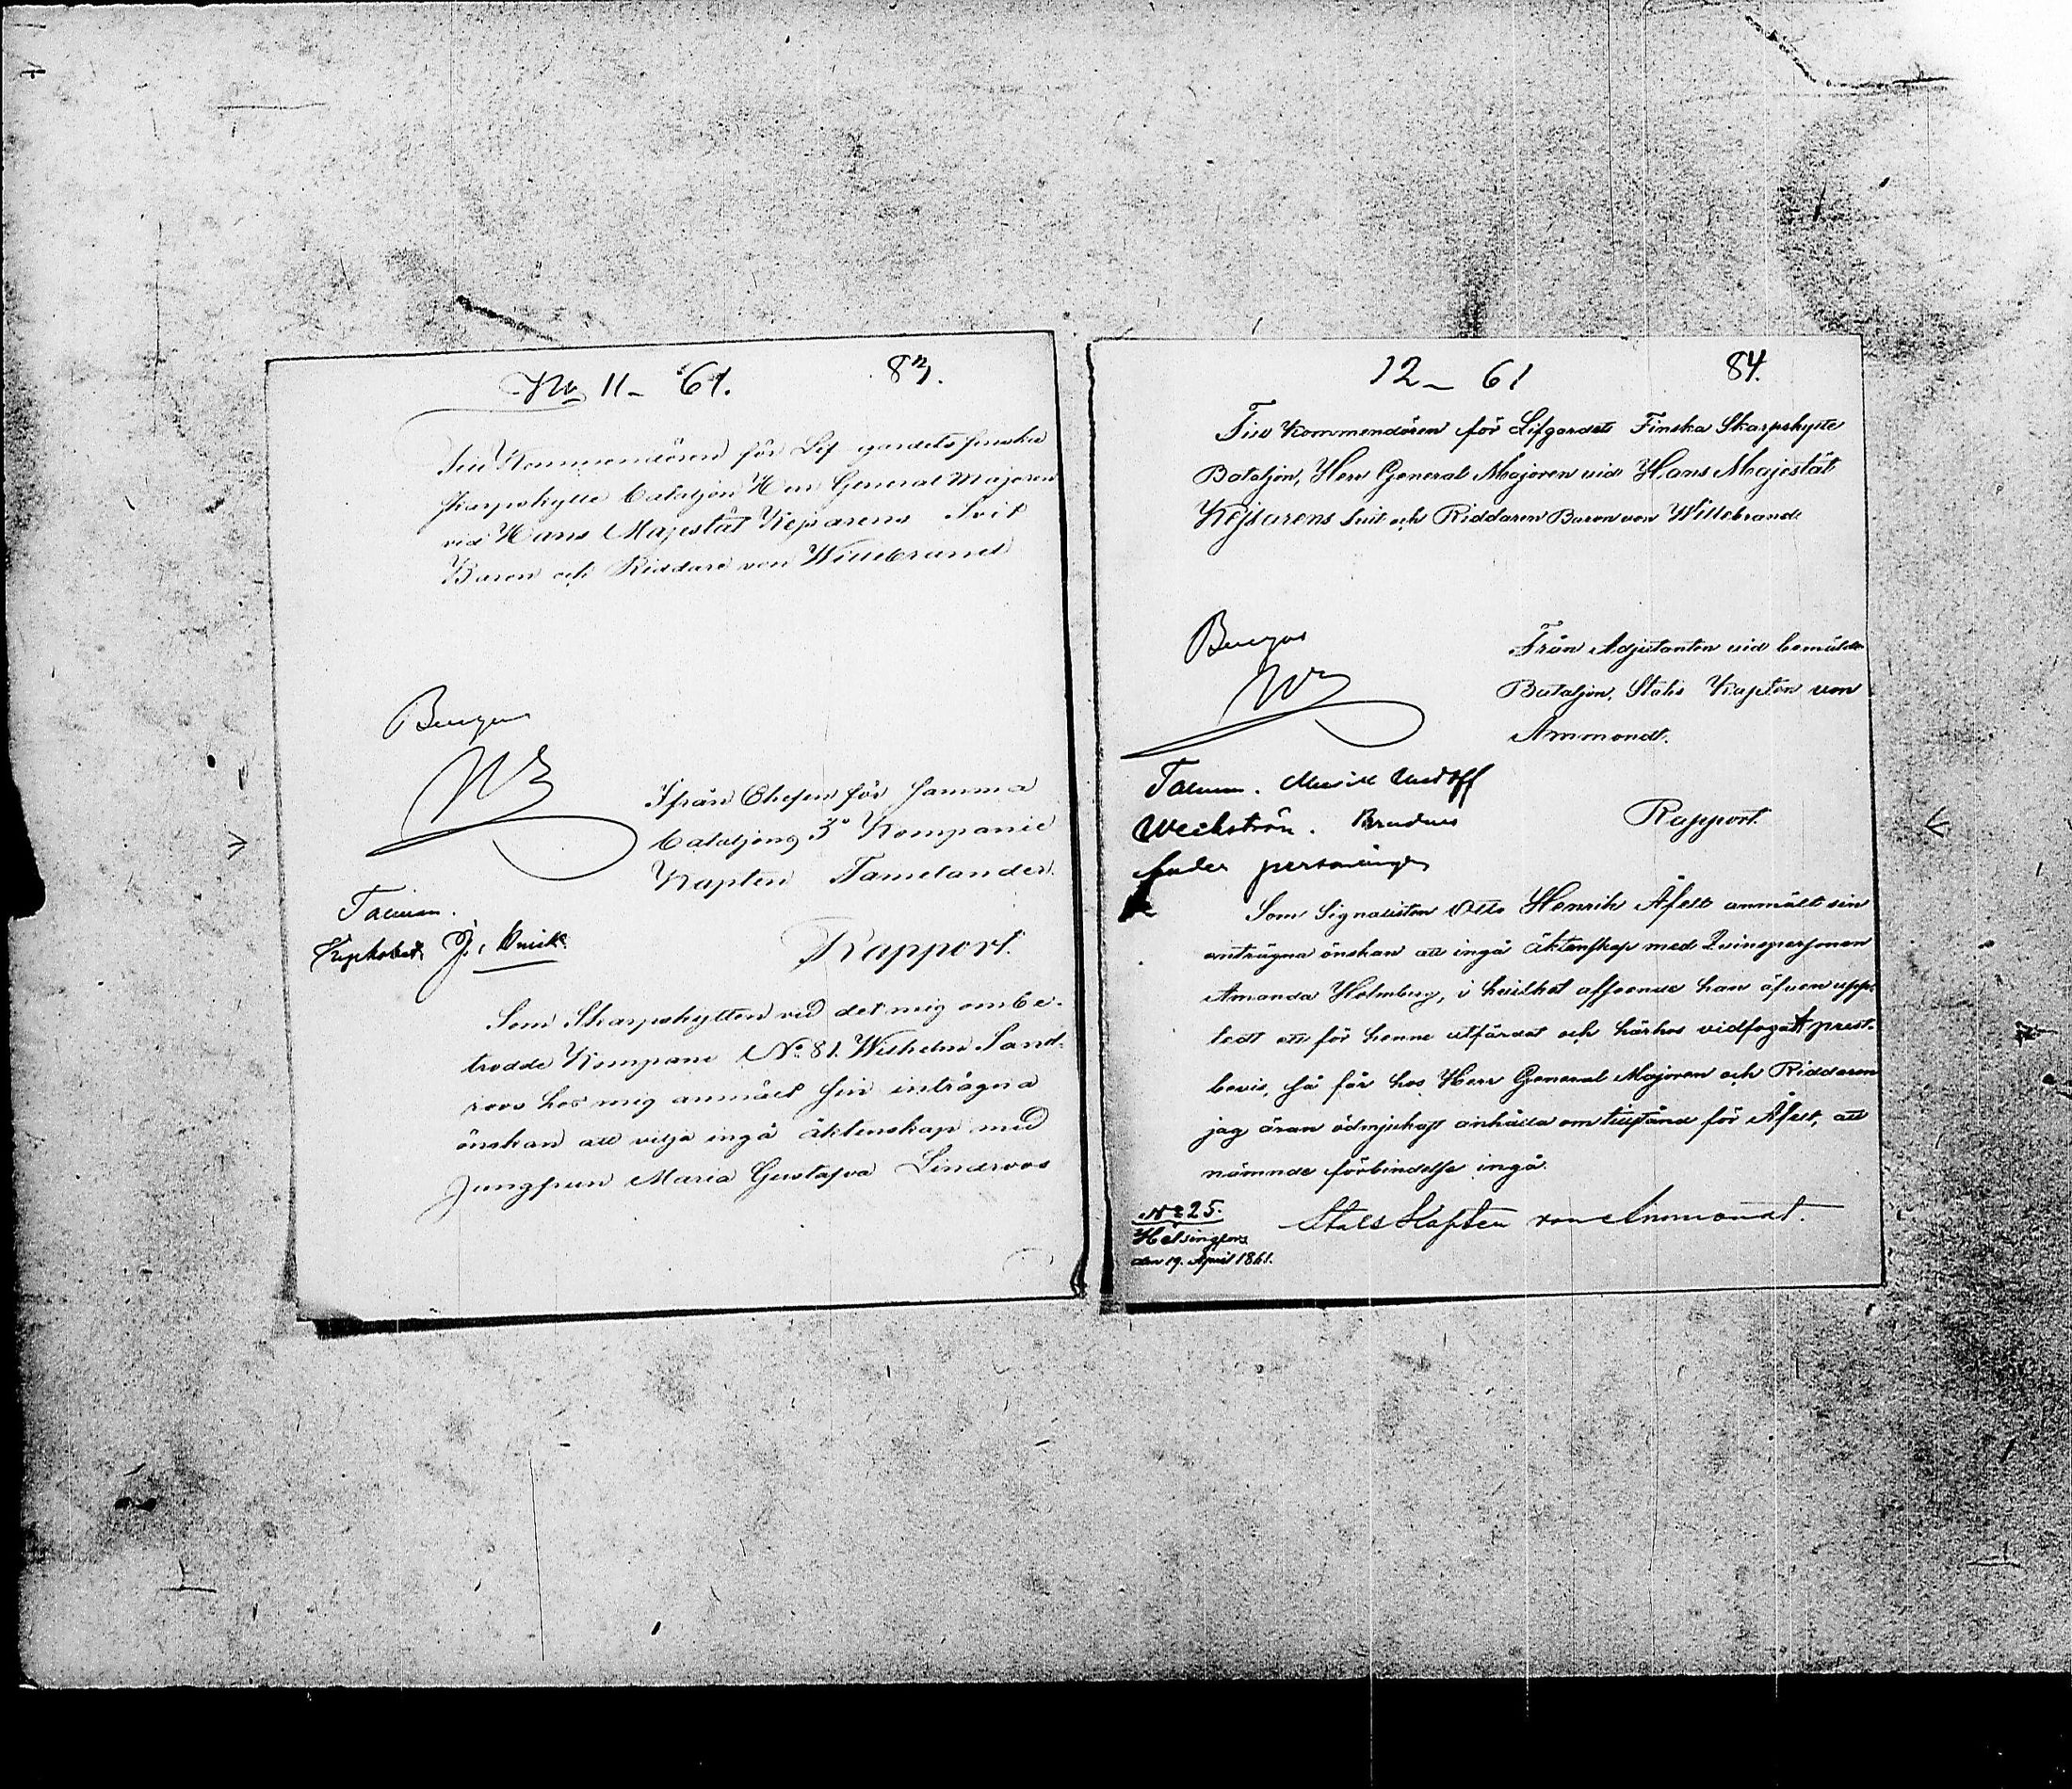 No 11- 61.
83.
Till Kommendören för Lif-gardets finska
skarpskytte bataljon Herr General Majoren
vid Hans Majestät Kejsarens Svit
Baron och Riddare von Willebrand
Ifrån Chefen för samma
bataljons 3e Kompanie
Kapten Tamelander.
Rapport.
Som Skarpskytten vid det mig ombe-
trodde Kompani No 81. Wilhelm Sand-
roos hos mig anmält sin inträgna
önskan att vilja ingå äktenskap med
Jungfrun Maria Gustafva Lindroos
12 - 61
84.
Till Kommendören för Lifgardets Finska Skarpskytte
Bataljon, Herr General Majoren vid Hans Majestät
Kejsarens Svit och Riddaren Baron von Willebrand
Från Adjutanten vid bemälde
Bataljon, Stabs Kapten von
Ammondt.
Rapport.
Weckström.
Som Signalisten Otto Henrik Åfelt anmält sin
enträgna önskan att ingå äktenskap med Qvinspersonen
Amanda Holmberg, i hvilket afseende han äfven upp-
tedt ett för henne utfärdat och härhos vidfogatt prest-
bevis, så får hos Herr General Majoren och Riddaren
jag äran ödmjukast anhålla om tillstånd för Åfelt, att
nämnde förbindelse ingå.
Stabs Kapten von Ammondt.
No 25.
Helsingfors
den 19. April 1861.